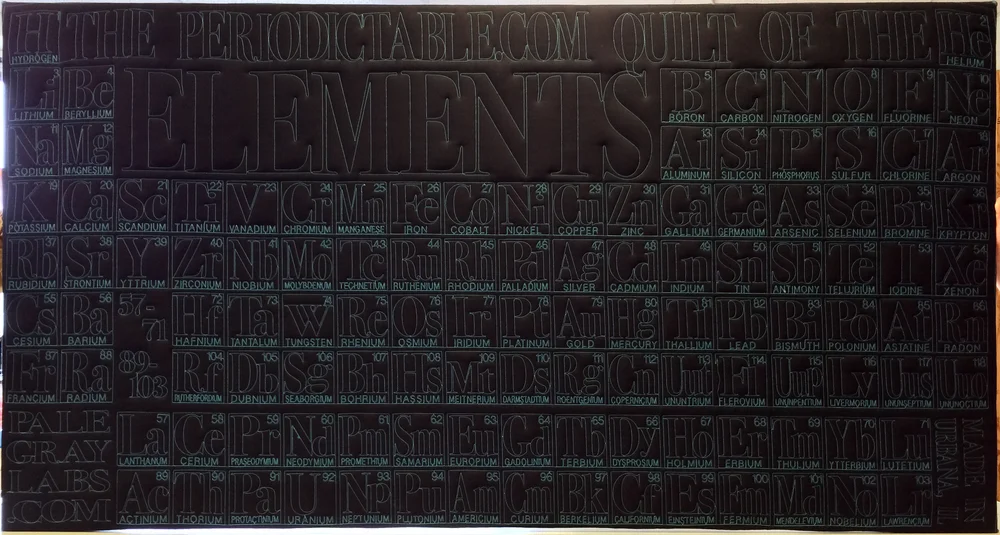 H THE PERIODICTABLE.COM QUILT OF THE 2 He
HYDROGEN HELIUM
3 Li 4 Be ELEMENTS 5 B 6 C 7 N 8 O 9 F 10 Ne
LITHIUM BERYLLIUM BORON CARBON NITROGEN OXYGEN FLUORINE NEON
11 Na 12 Mg 13 Al 14 Si 15 P 16 S 17 Cl Ar
SODIUM MAGNESIUM ALUMINUM SILICON PHOSPHORUS SULFUR CHLORINE ARGON
19 K 20 Ca 21 Sc 22 Ti 23 V 24 Cr 25 Mn 26 Fe 27 Co 28 Ni 29 Cu 30 Zn 31 Ga 32 Ge 33 As 34 Se 35 Br 36 Kr
POTASSIUM CALCIUM SCANDIUM TITANIUM VANADIUM CHROMIUM MANGANESE IRON COBALT NICKEL COPPER ZINC GALLIUM GERMANIUM ARSENIC SELENIUM BROMINE KRYPTON
37 Rb 38 Sr 39 Y 40 Zr 41 Nb 42 Mo 43 Tc 44 Ru 45 Rh 46 Pd 47 Ag 48 Cd 49 In 50 Sn 51 Sb 52 Te 53 I 54 Xe
RUBIDIUM STRONTIUM YTTRIUM ZIRCONIUM NIOBIUM MOLYBDENUM TECHNETIUM RUTHENIUM RHODIUM PALLADIUM SILVER CADMIUM INDIUM TIN ANTIMONY TELLURIUM IODINE XENON
55 Cs 56 Ba 57-71 72 Hf 73 Ta 74 W 75 Re 76 Os 77 Ir 78 Pt 79 Au 80 Hg 81 Tl 82 Pb 83 Bi 84 Po 85 At 86 Rn
CESIUM BARIUM HAFNIUM TANTALUM TUNGSTEN RHENIUM OSMIUM IRIDIUM PLATINUM GOLD MERCURY THALLIUM LEAD BISMUTH POLONIUM ASTATINE RADON
87 Fr 88 Ra 89-103 104 Rf 105 Db 106 Sg 107 Bh 108 Hs 109 Mt 110 Ds 111 Rg 112 Cn 113 Uut 114 Fl 115 Uup 116 Lv 117 Uus
FRANCIUM RADIUM RUTHERFORDIUM DUBNIUM SEABORGIUM BOHRIUM HASSIUM MEITNERIUM DARMSTADTIUM ROENTGENIUM COPERNICIUM UNUNTRIUM FLEROVIUM UNUNPENTIUM LIVERMORIUM UNUNSEPTIUM UNUNOCTIUM
PALE GRAY LABS .COM
57 La 58 Ce 59 Pr 60 Nd 61 Pm 62 Sm 63 Eu 64 Gd 65 Tb 66 Dy 67 Ho 68 Er 69 Tm 70 Yb 71 Lu
LANTHANUM CERIUM PRASEODYMIUM NEODYMIUM PROMETHIUM SAMARIUM EUROPIUM GADOLINIUM TERBIUM DYSPROSIUM HOLMIUM ERBIUM THULIUM YTTERBIUM LUTETIUM
89 Ac 90 Th 91 Pa 92 U 93 Np 94 Pu 95 Am 96 Cm 97 Bk 98 Cf 99 Es 100 Fm 101 Md 102 No 103 Lr
ACTINIUM THORIUM PROTACTINIUM URANIUM NEPTUNIUM PLUTONIUM AMERICIUM CURIUM BERKELIUM CALIFORNIUM EINSTEINIUM FERMIUM MENDELEVIUM NOBELIUM LAWRENCIUM
MADE IN
URBANA, IL